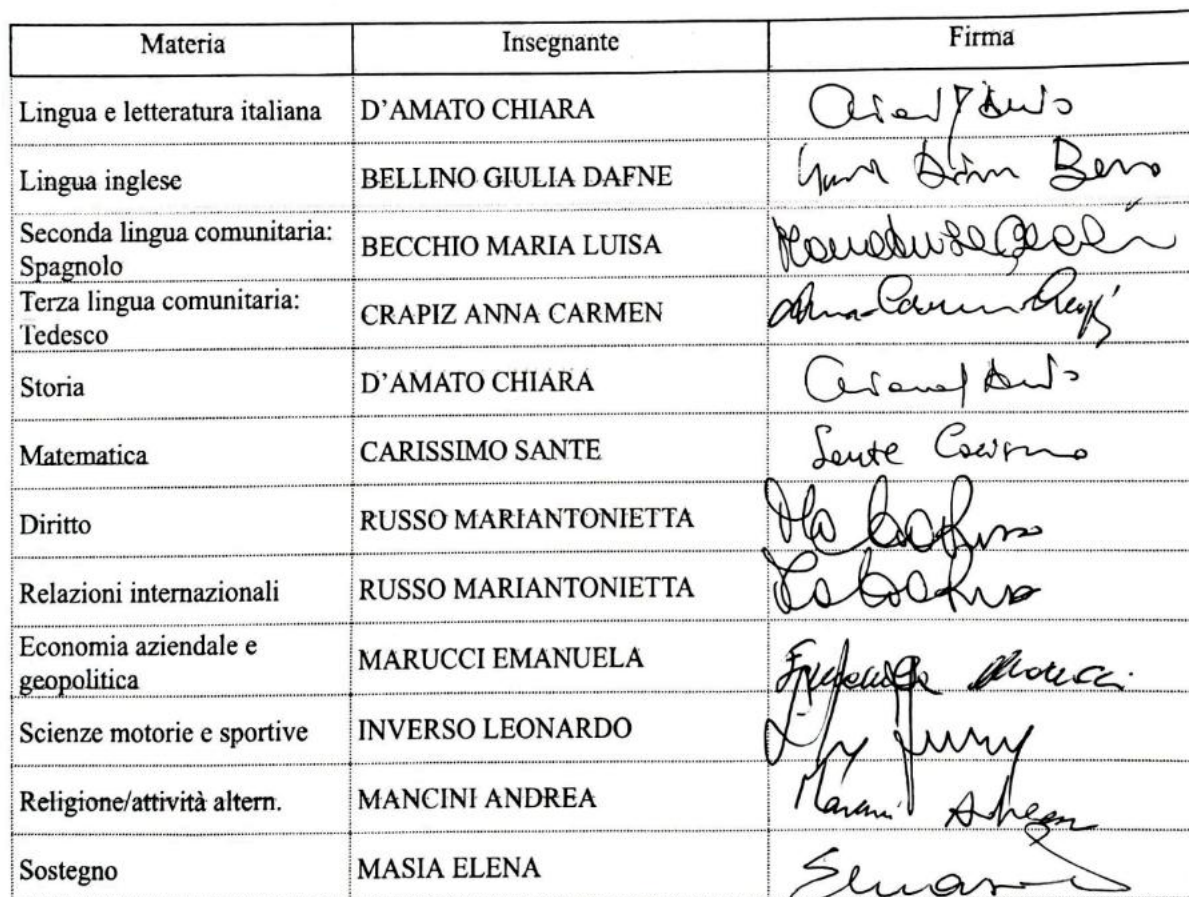 Materia Insegnante Firma
Lingua e letteratura italiana D'AMATO CHIARA
Lingua inglese BELLINO GIULIA DAFNE
Seconda lingua comunitaria:
Spagnolo BECCHIO MARIA LUISA
Terza lingua comunitaria:
Tedesco CRAPIZ ANNA CARMEN
Storia D'AMATO CHIARA
Matematica CARISSIMO SANTE
Diritto RUSSO MARIANTONIETTA
Relazioni internazionali RUSSO MARIANTONIETTA
Economia aziendale e
geopolitica MARUCCI EMANUELA
Scienze motorie e sportive INVERSO LEONARDO
Religione/attività altern. MANCINI ANDREA
Sostegno MASIA ELENA